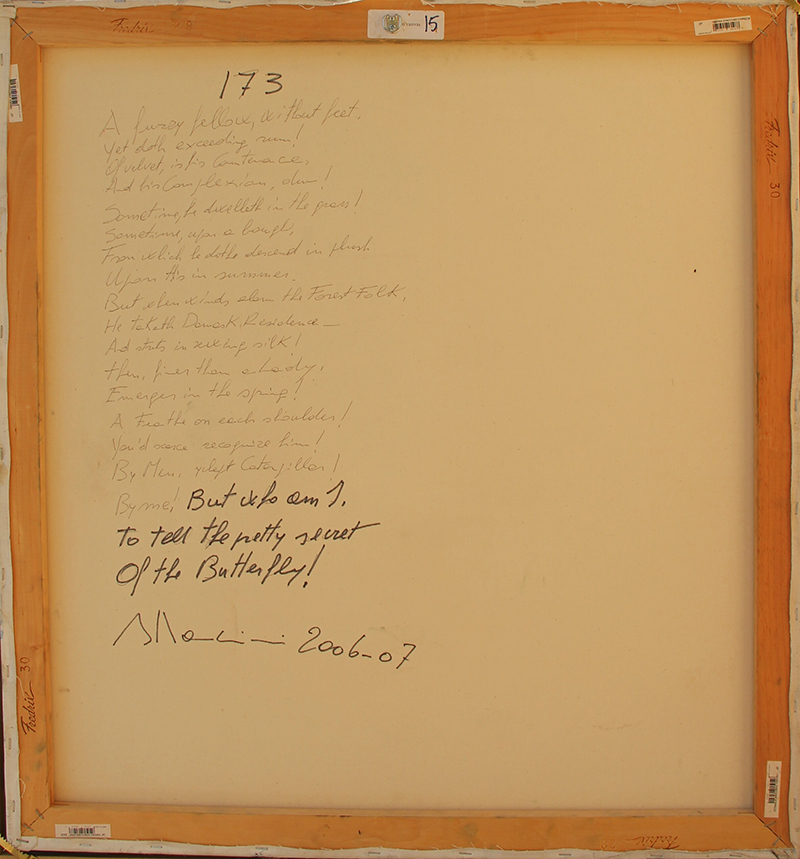 Fredrix
15
173
A fuzzy fellow, without feet,
Yet doth exceeding run!
Of velvet, is his Countenance,
And his Complexion, dun!
Sometime, he dwelleth in the grass!
Sometime, upon a bough,
From which he dothe descend in plush
Upon in summer.
But when winds alarm the Forest Folk,
He taketh Damask Residence—
And struts in sewing silk!
Then, finer than a Lady,
Emerges in the spring!
A Feathe on each shoulder!
You'd scarce recognize him!
By Men, yclept Caterpillar!
By me! But who am I,
To tell the pretty secret
Of the Butterfly!
2006-07
Fredrix 30
Fredrix 30
Fredrix